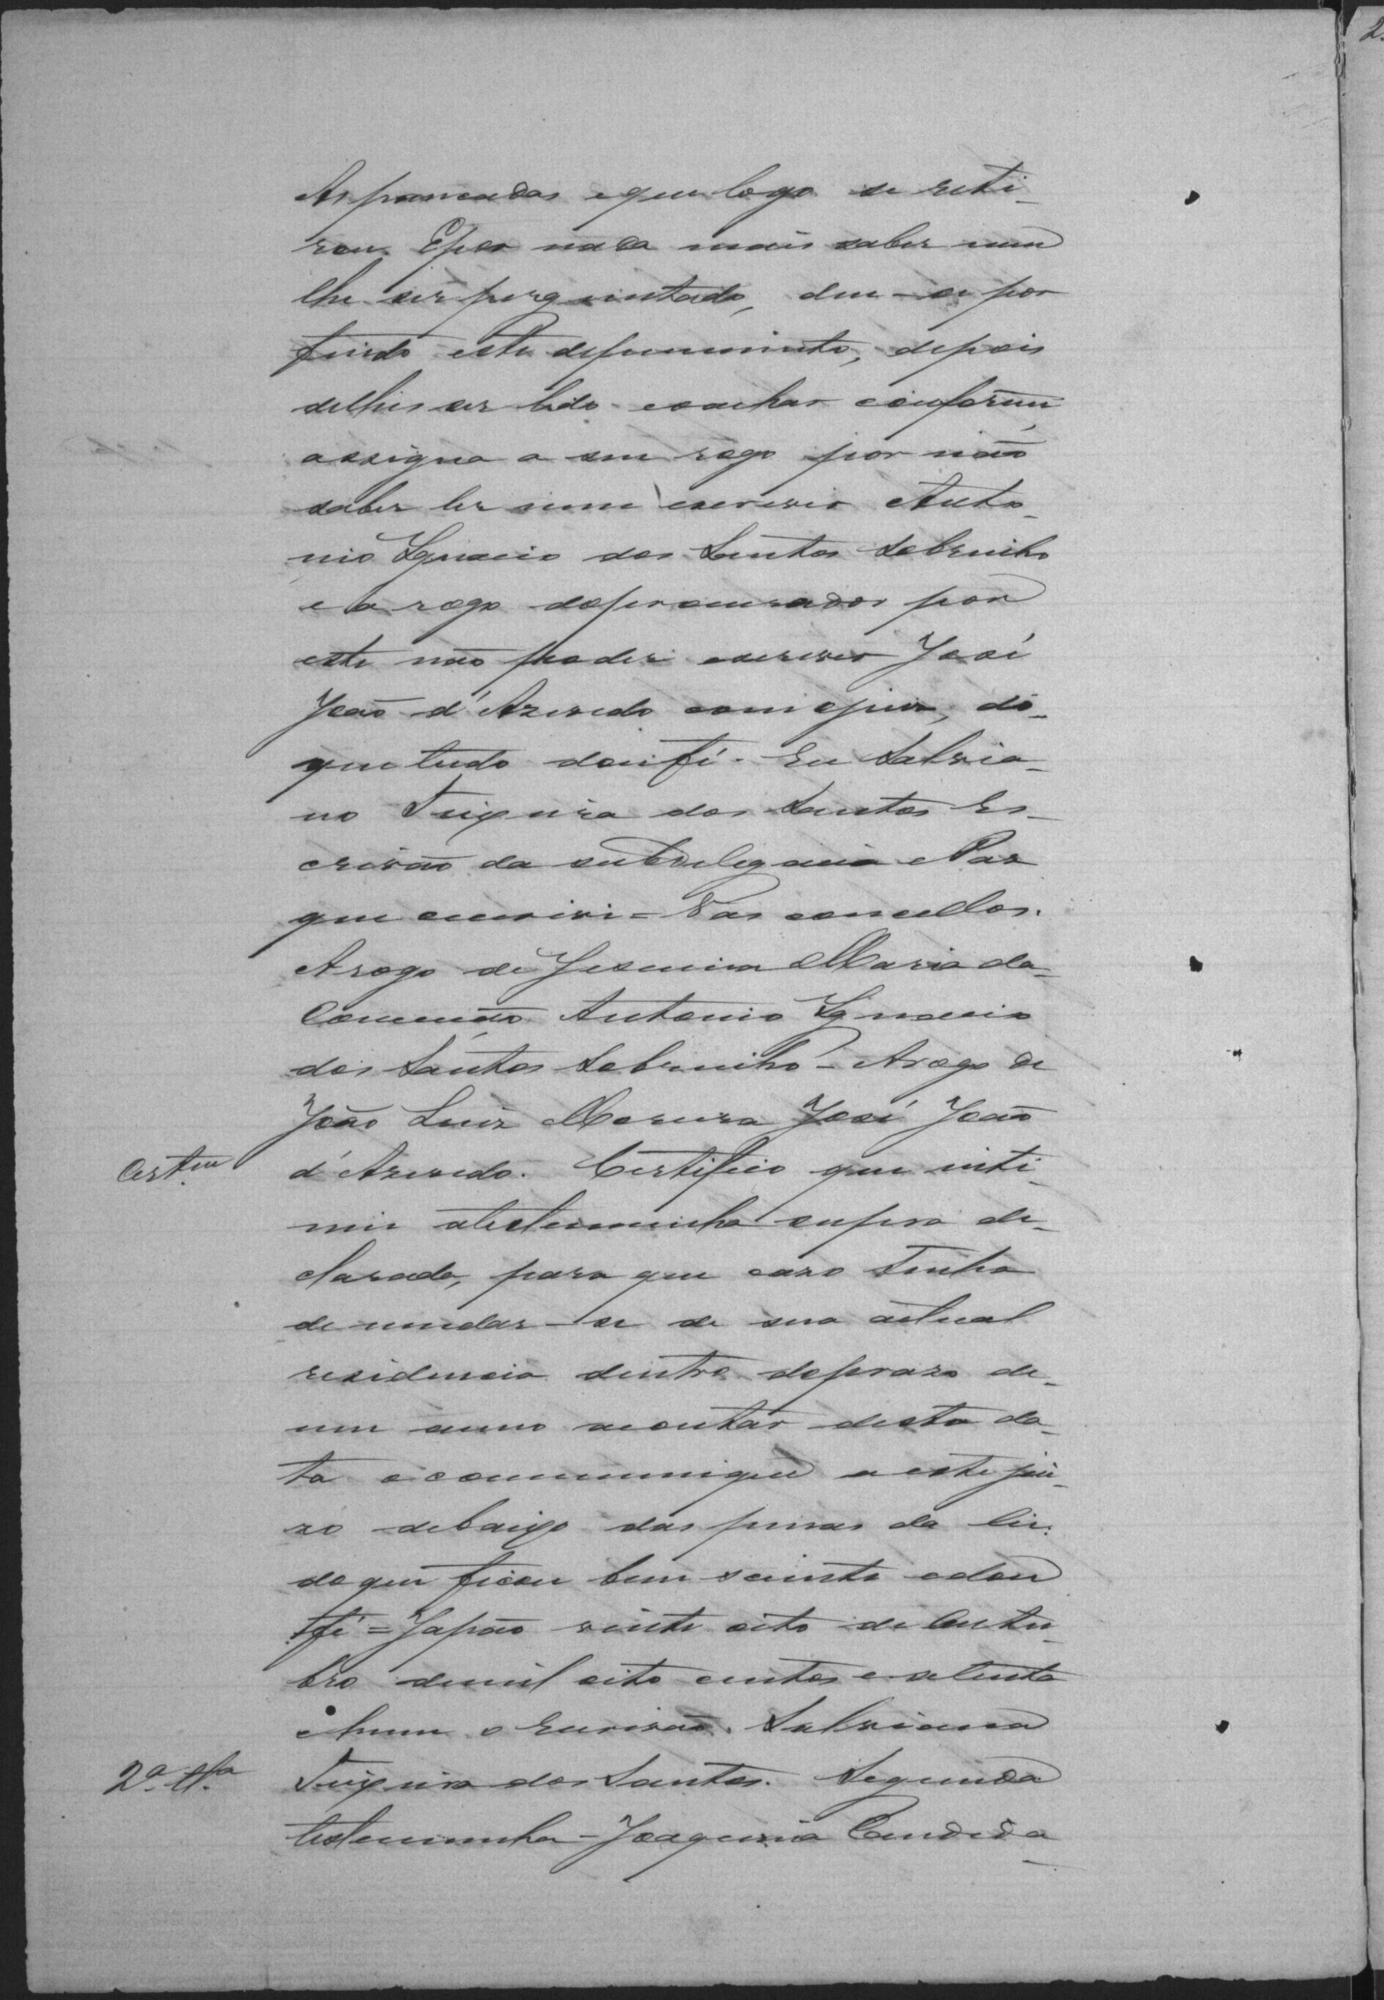 As pancadas e que logo se reti-
rou. E por nada mais saber nem
lhe ser perguntado, deu-se por
findo este depoimento, depois
delhes ser lido e o achar conforme,
assigna a seu rogo por não
saber ler nem escrever Anto-
nio Ignacio dos Santos Sobrinho
e a rogo do procurador por
este não poder escrever José
João d'Azevedo com o juiz, do
que tudo dou fé. Eu Salvia-
no Teixeira dos Santos Es-
crivão da subdelegacia e Paz
que escrivi = Vasconcellos.
A rogo de Jesuina Maria da
Conceição Antonio Ignacio
dos Santos Sobrinho - A rogo de
João Luiz Moreira José João
Cert.am d'Azevedo. Certifico que inti-
mei a testemunha supra de-
clarada, para que caso tenha
de mudar-se de sua actual
residencia dentro do prazo de
um anno a contar desta da-
ta o communique a este jui-
zo debaixo das penas da lei.
do que ficou bem sciente e dou
fé = Japão vinte oito de Outu-
bro de mil oito centos e setenta
e hum o Escrivão. Salviano
2ª Tª Teixeira dos Santos. Segunda
testemunha - Joaquina Candida